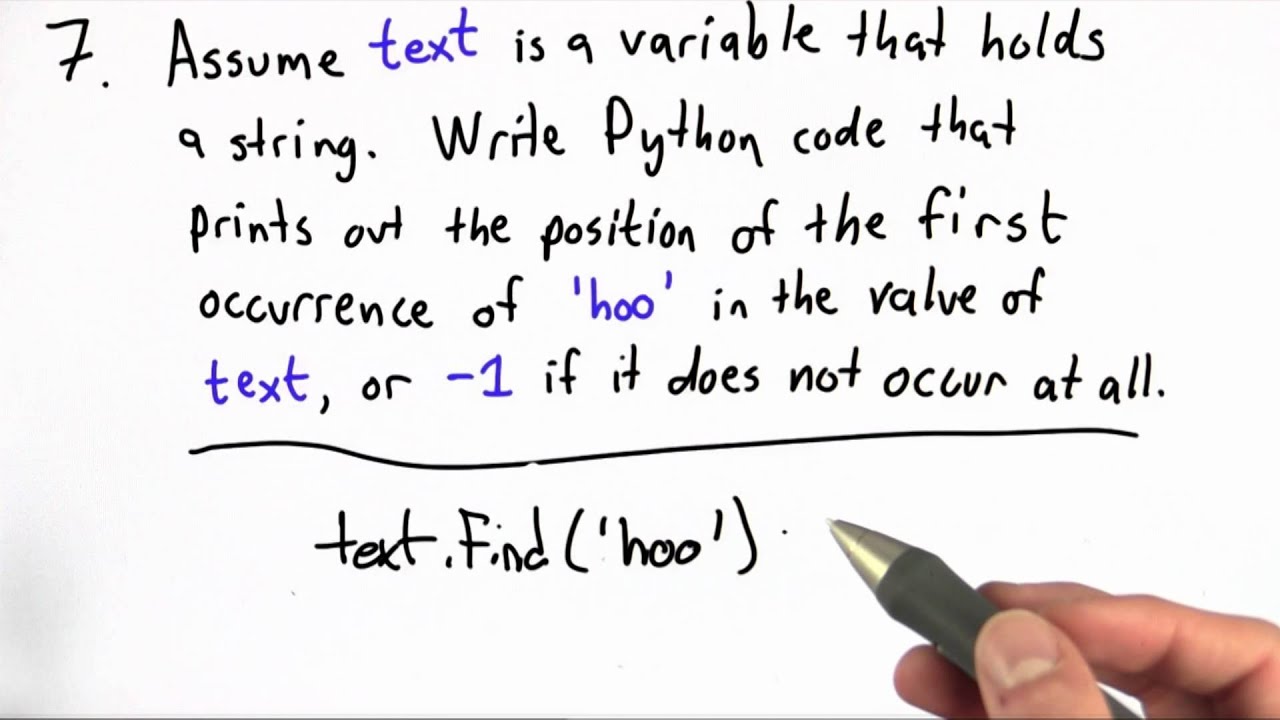 7. Assume text is a variable that holds
a string. Write Python code that
prints out the position of the first
occurrence of 'hoo' in the value of
text, or -1 if it does not occur at all.
text.find('hoo')